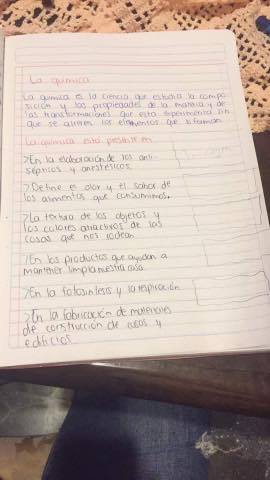 La química
La química es la ciencia que estudia la compo
sición y las propiedades de la materia y de
las transformaciones que esta experimenta sin
que se alteren los elementos que la forman.
La química está presente en
>En la elaboración de los anti-
sépticos y anestésicos.
>Define el olor y el sabor de
los alimentos que consumimos.
>La textura de los objetos y
los colores atractivos de las
cosas que nos rodean
>En los productos que ayudan a
mantener limpia nuestra casa
>En la fotosíntesis y la respiración
>En la fabricación de materiales
de construcción de casas y
edificios